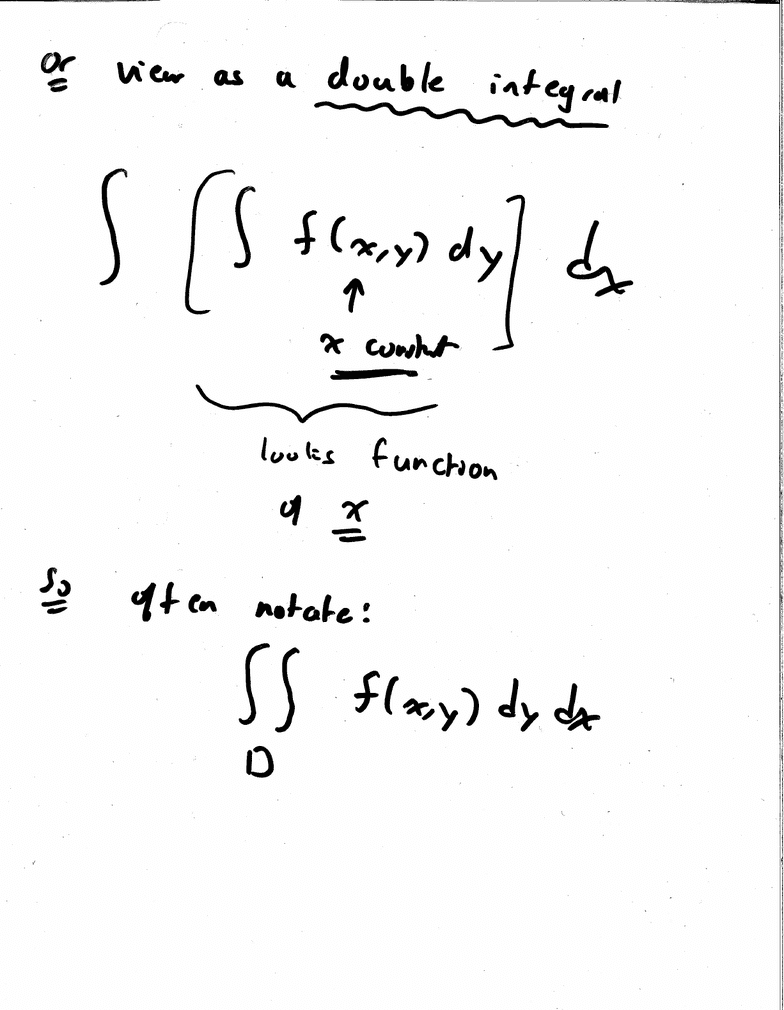 or view as a double integral
∫ [∫ f(x,y) dy] dx
↑
x constant
looks function
of x
so often notate:
∫∫ f(x,y) dy dx
D